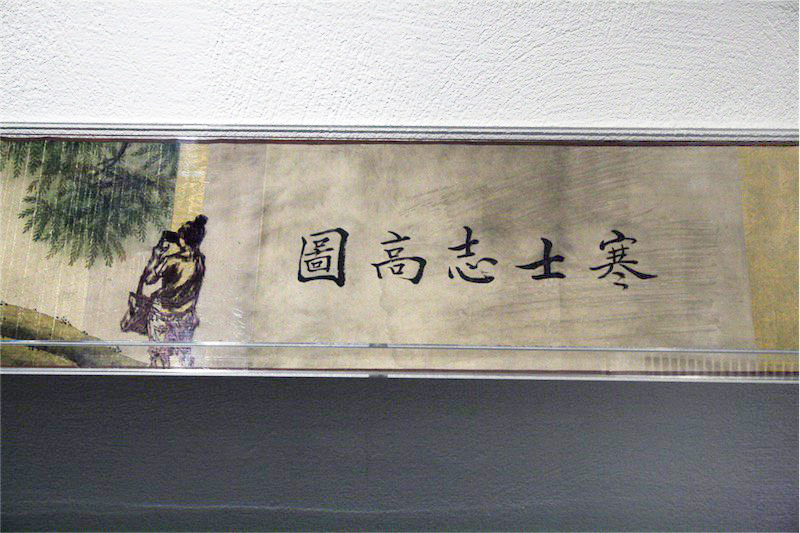 寒士志高圖